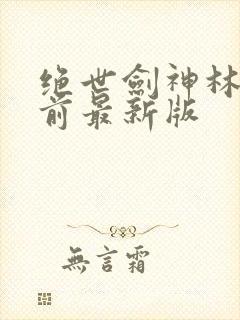 绝世劍神林
前最新版
無言霜